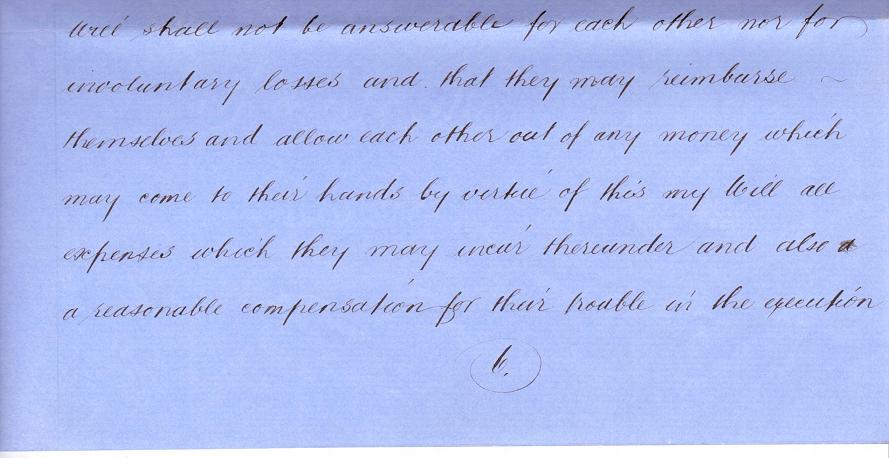 Will shall not be answerable for each other nor for
involuntary losses and that they may reimburse ~
themselves and allow each other out of any money which
may come to their hands by virtue of this my Will all
expenses which they may incur thereunder and also a
a reasonable compensation for their trouble in the execution
6.